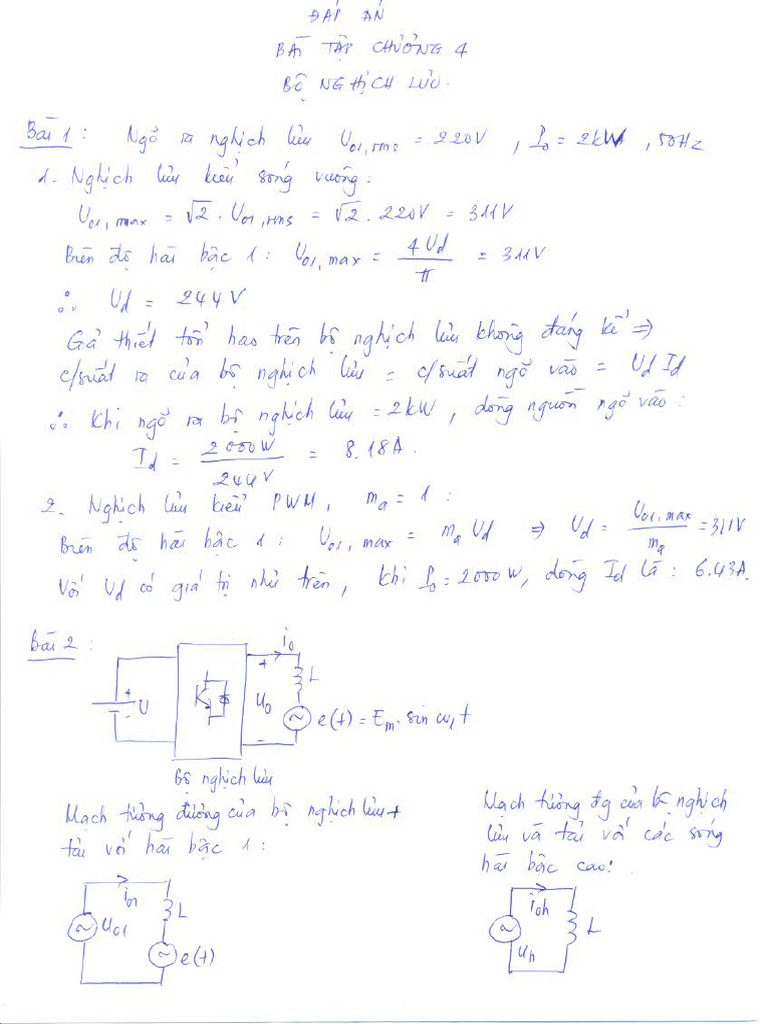 ĐÁP ÁN
BÀI TẬP CHƯƠNG 4
BỘ NGHỊCH LƯU.
Bài 1 : Ngõ ra nghịch lưu U01,rms = 220V , P0 = 2kW , 50Hz
1. Nghịch lưu kiểu sóng vuông :
U01,max = √2 . U01,rms = √2 . 220V = 311V
Biên độ hài bậc 1 : U01,max = 4Ud / π = 311V
∴ Ud = 244V
Gả thiết tổn hao trên bộ nghịch lưu không đáng kể ⇒
c/suất ra của bộ nghịch lưu = c/suất ngõ vào = Ud Id
∴ Khi ngõ ra bộ nghịch lưu = 2kW , dòng nguồn ngõ vào :
Id = 2000W / 244V = 8.18A .
2. Nghịch lưu kiểu PWM , ma = 1 :
Biên độ hài bậc 1 : U01,max = ma Ud ⇒ Ud = U01,max / ma = 311V
Với Ud có giá trị như trên , khi P0 = 2000W , dòng Id là : 6.43A.
Bài 2 :
i0
+ U + U0 - L
e(t) = Em . sin ω1t
Bộ nghịch lưu
Mạch tương đương của bộ nghịch lưu +
tải với hài bậc 1 :
i01
U01 L
e(t)
Mạch tương đg của bộ nghịch
lưu và tải với các sóng
hài bậc cao :
i0h
Uh L